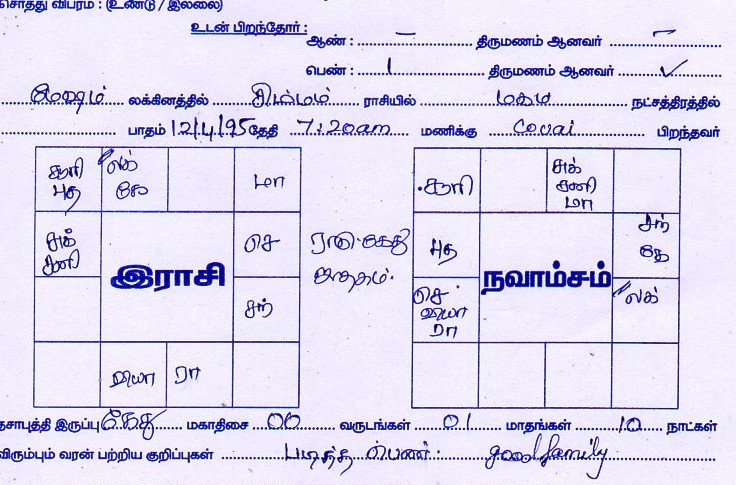 சொத்து விபரம் : (உண்டு / இல்லை)
உடன் பிறந்தோர் :
ஆண் : – திருமணம் ஆனவர் –
பெண் : 1 திருமணம் ஆனவர் ✓
மேஷம் லக்கினத்தில் சிம்மம் ராசியில் மகம் நட்சத்திரத்தில்
பாதம் 12/4/95 தேதி 7:20am மணிக்கு Covai பிறந்தவர்
சூரி புத
லக் கே
மா
சுக் சனி
இராசி
செ
சந்
வியா
ரா
ராகு கேது ஜாதகம்.
சூரி
சுக் சனி மா
புத
நவாம்சம்
சந் கே
செ வியா ரா
லக்
தசாபுத்தி இருப்பு கேது மகாதிசை 06 வருடங்கள் 01 மாதங்கள் 10 நாட்கள்
விரும்பும் வரன் பற்றிய குறிப்புகள் படித்த பெண். good family